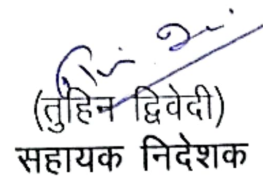 (तुहिन द्विवेदी)
सहायक निदेशक